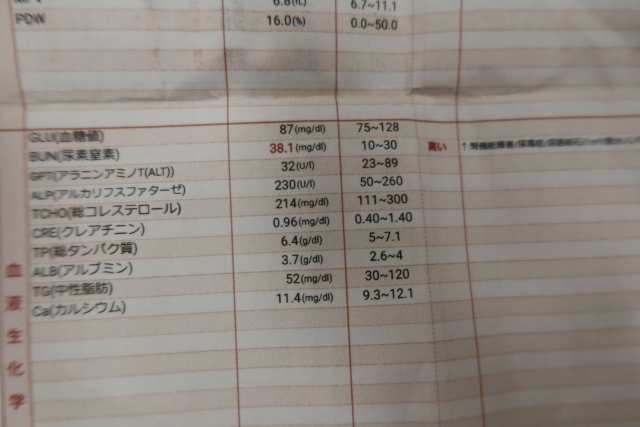 6.8(fL) 6.7~11.1
PDW 16.0(%) 0.0~50.0
GLU(血糖値) 87(mg/dl) 75~128
BUN(尿素窒素) 38.1(mg/dl) 10~30 高い
GPT(アラニンアミノT(ALT)) 32(U/l) 23~89
ALP(アルカリフスファターゼ) 230(U/l) 50~260
TCHO(総コレステロール) 214(mg/dl) 111~300
CRE(クレアチニン) 0.96(mg/dl) 0.40~1.40
TP(総タンパク質) 6.4(g/dl) 5~7.1
ALB(アルブミン) 3.7(g/dl) 2.6~4
TG(中性脂肪) 52(mg/dl) 30~120
Ca(カルシウム) 11.4(mg/dl) 9.3~12.1
血液生化学